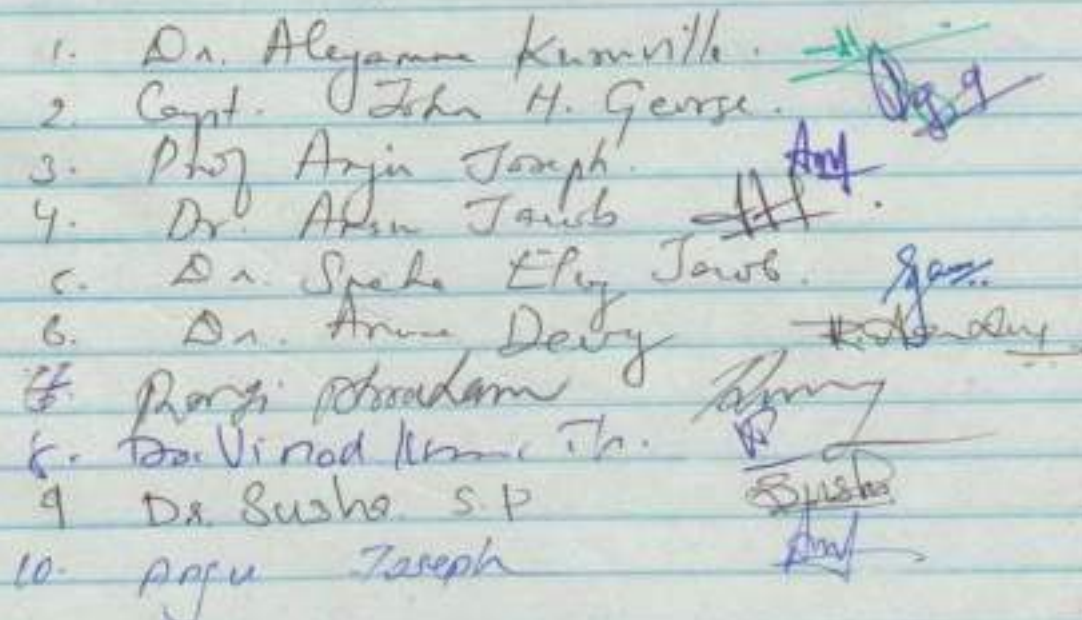 1. Dr. Aleyamma Kuruvilla.
2. Capt. John H. George.
3. Prof Anju Joseph.
4. Dr. Arun Jacob
5. Dr. Sneha Elzy Jacob.
6. Dr. Devy
7. Renji Abraham
8. Dr. Vinod Kumar Th.
9 Dr. Susha. S. P Susha
10. Anju Joseph